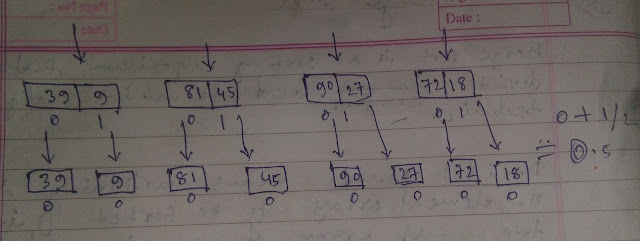 Page No:
Date
Date :
39 9 81 45 90 27 72 18
0 1 0 1 0 1 0 1
0 + 1/2
= 0.5
39 9 81 45 90 27 72 18
0 0 0 0 0 0 0 0